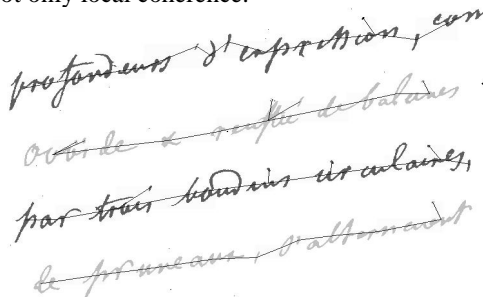 ot only local coherence.
profondeurs d'expression, com
ovoide & renflée de baleines
par trois boudins circulaires,
de pruneaux, s'alternaient